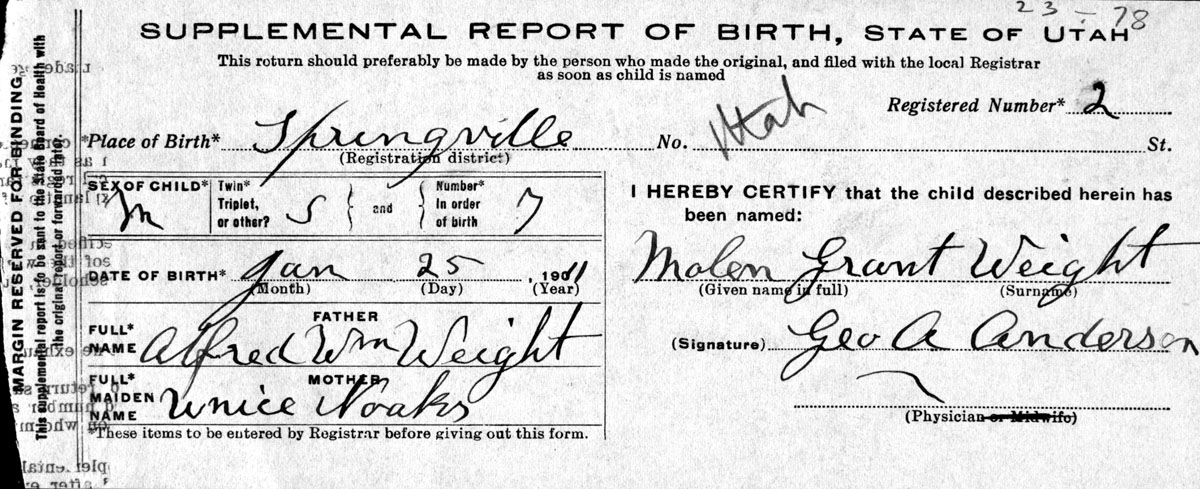 23 - 78
SUPPLEMENTAL REPORT OF BIRTH, STATE OF UTAH
This return should preferably be made by the person who made the original, and filed with the local Registrar
as soon as child is named
Registered Number* 2
*Place of Birth* Springville No. Utah St.
(Registration district)
SEX OF CHILD* M
Twin* Triplet, or other? S and Number* In order of birth 7
DATE OF BIRTH* Jan 25, 1911
(Month) (Day) (Year)
FATHER
FULL* NAME Alfred Wm Weight
MOTHER
FULL* MAIDEN NAME Unice Noakes
*These items to be entered by Registrar before giving out this form.
I HEREBY CERTIFY that the child described herein has
been named:
Molen Grant Weight
(Given name in full) (Surname)
(Signature) Geo A Anderson
(Physician or Midwife)
MARGIN RESERVED FOR BINDING.
This supplemental report is to be sent to the State Board of Health with
the original report or forwarded later.